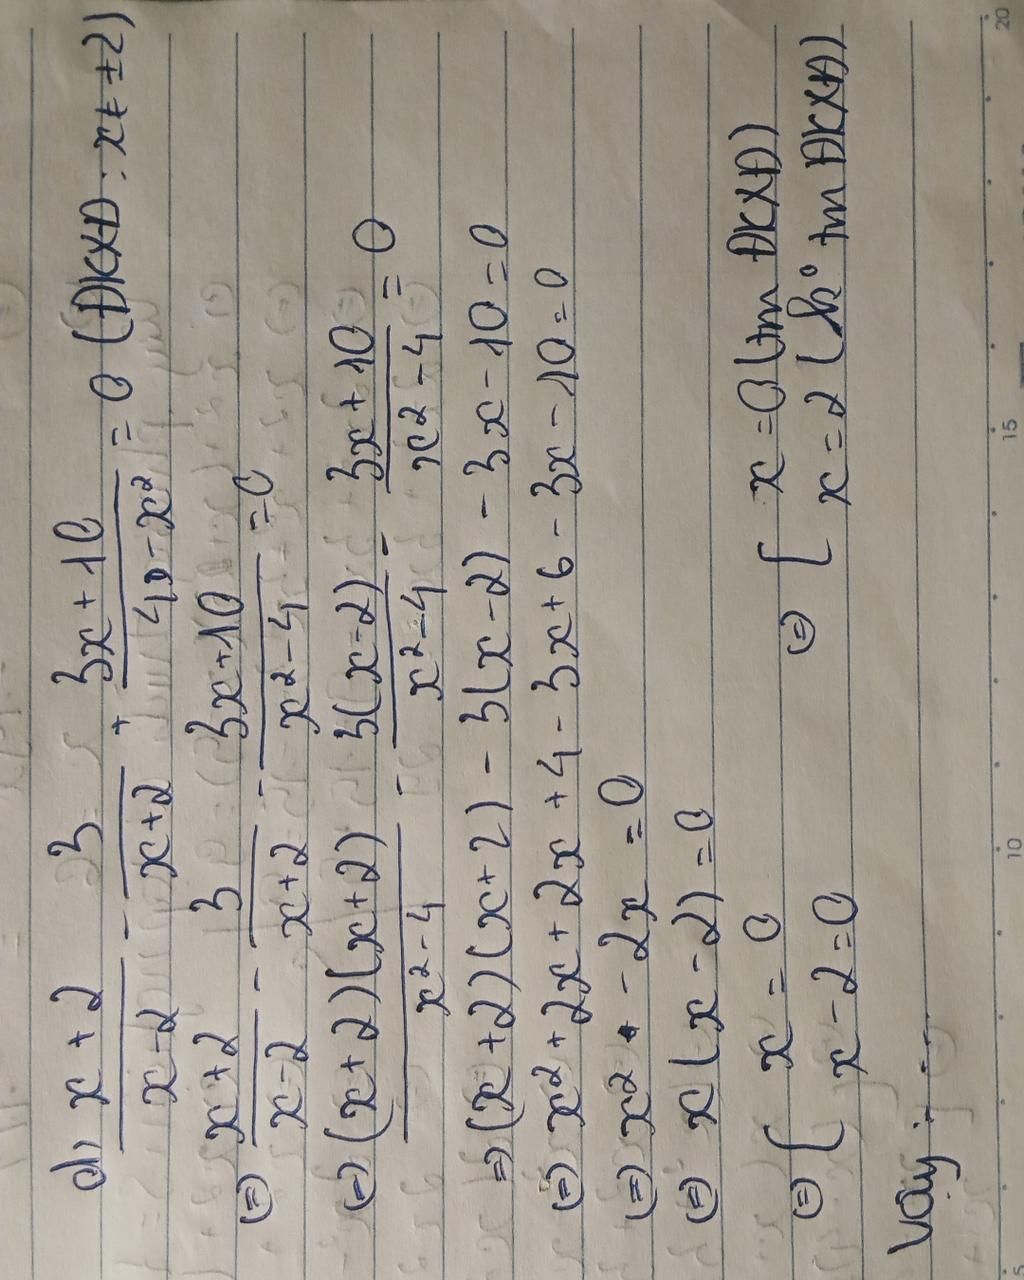 d) (x+2)/(x-2) - 3/(x+2) + (3x+10)/(4-x²) = 0 (ĐKXĐ: x≠±2)
(=) (x+2)/(x-2) - 3/(x+2) - (3x+10)/(x²-4) = 0
(=) (x+2)(x+2)/(x²-4) - 3(x-2)/(x²-4) - (3x+10)/(x²-4) = 0
=) (x+2)(x+2) - 3(x-2) - 3x-10=0
(=) x²+2x+2x+4-3x+6-3x-10=0
(=) x² - 2x = 0
(=) x(x-2)=0
(=) [ x = 0 (=) [ x=0 (tm ĐKXĐ)
x-2=0 x=2 (k° tm ĐKXĐ)
Vậy :....
20
15
10
5